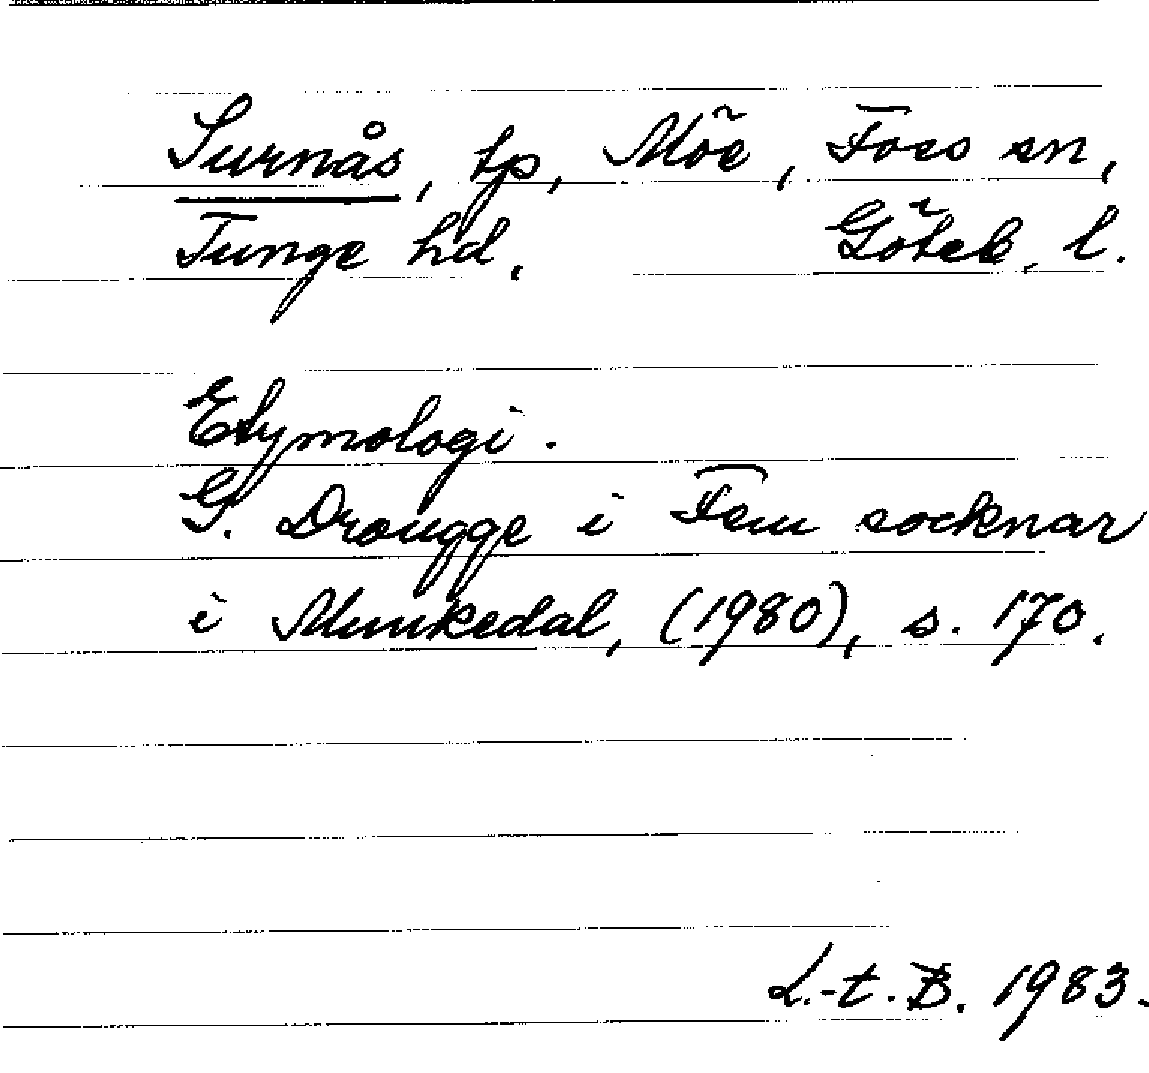 Surnås, tp, Möe, Foss sn,
Tunge hd. Göteb. l.
Etymologi.
G. Drougge i Fem socknar
i Munkedal, (1980), s. 170.
L.-t. B. 1983.